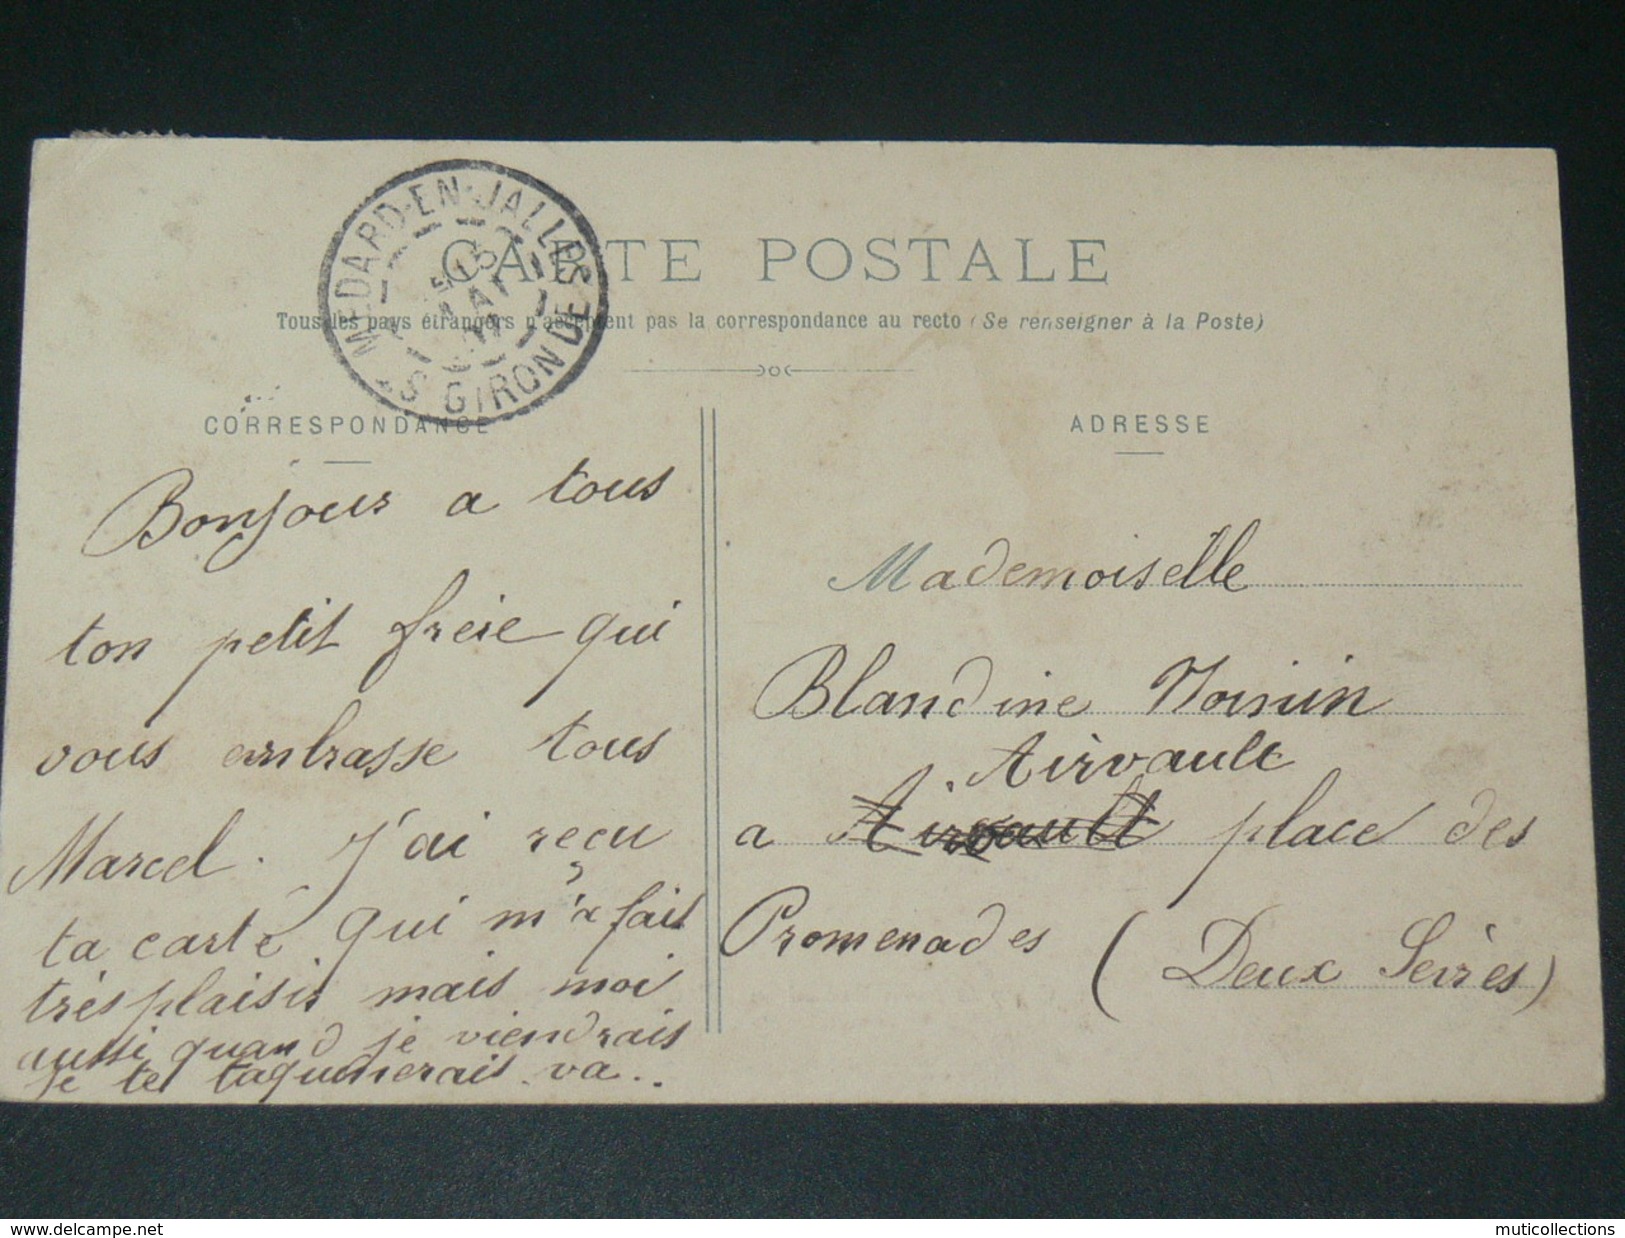 CARTE POSTALE
Tous les pays étrangers n'acceptent pas la correspondance au recto (Se renseigner à la Poste)
ST MEDARD-EN-JALLES
GIRONDE
CORRESPONDANCE
Bonjour a tous
ton petit freie qui
vous embrasse tous
Marcel. J'ai reçu
ta carte qui m'a fait
très plaisir mais moi
aussi quand je viendrais
je te taquinerais va..
ADRESSE
Mademoiselle
Blandine
Airvault
a Airvault place des
Promenades (Deux Sèvres)
www.delcampe.net
muticollections